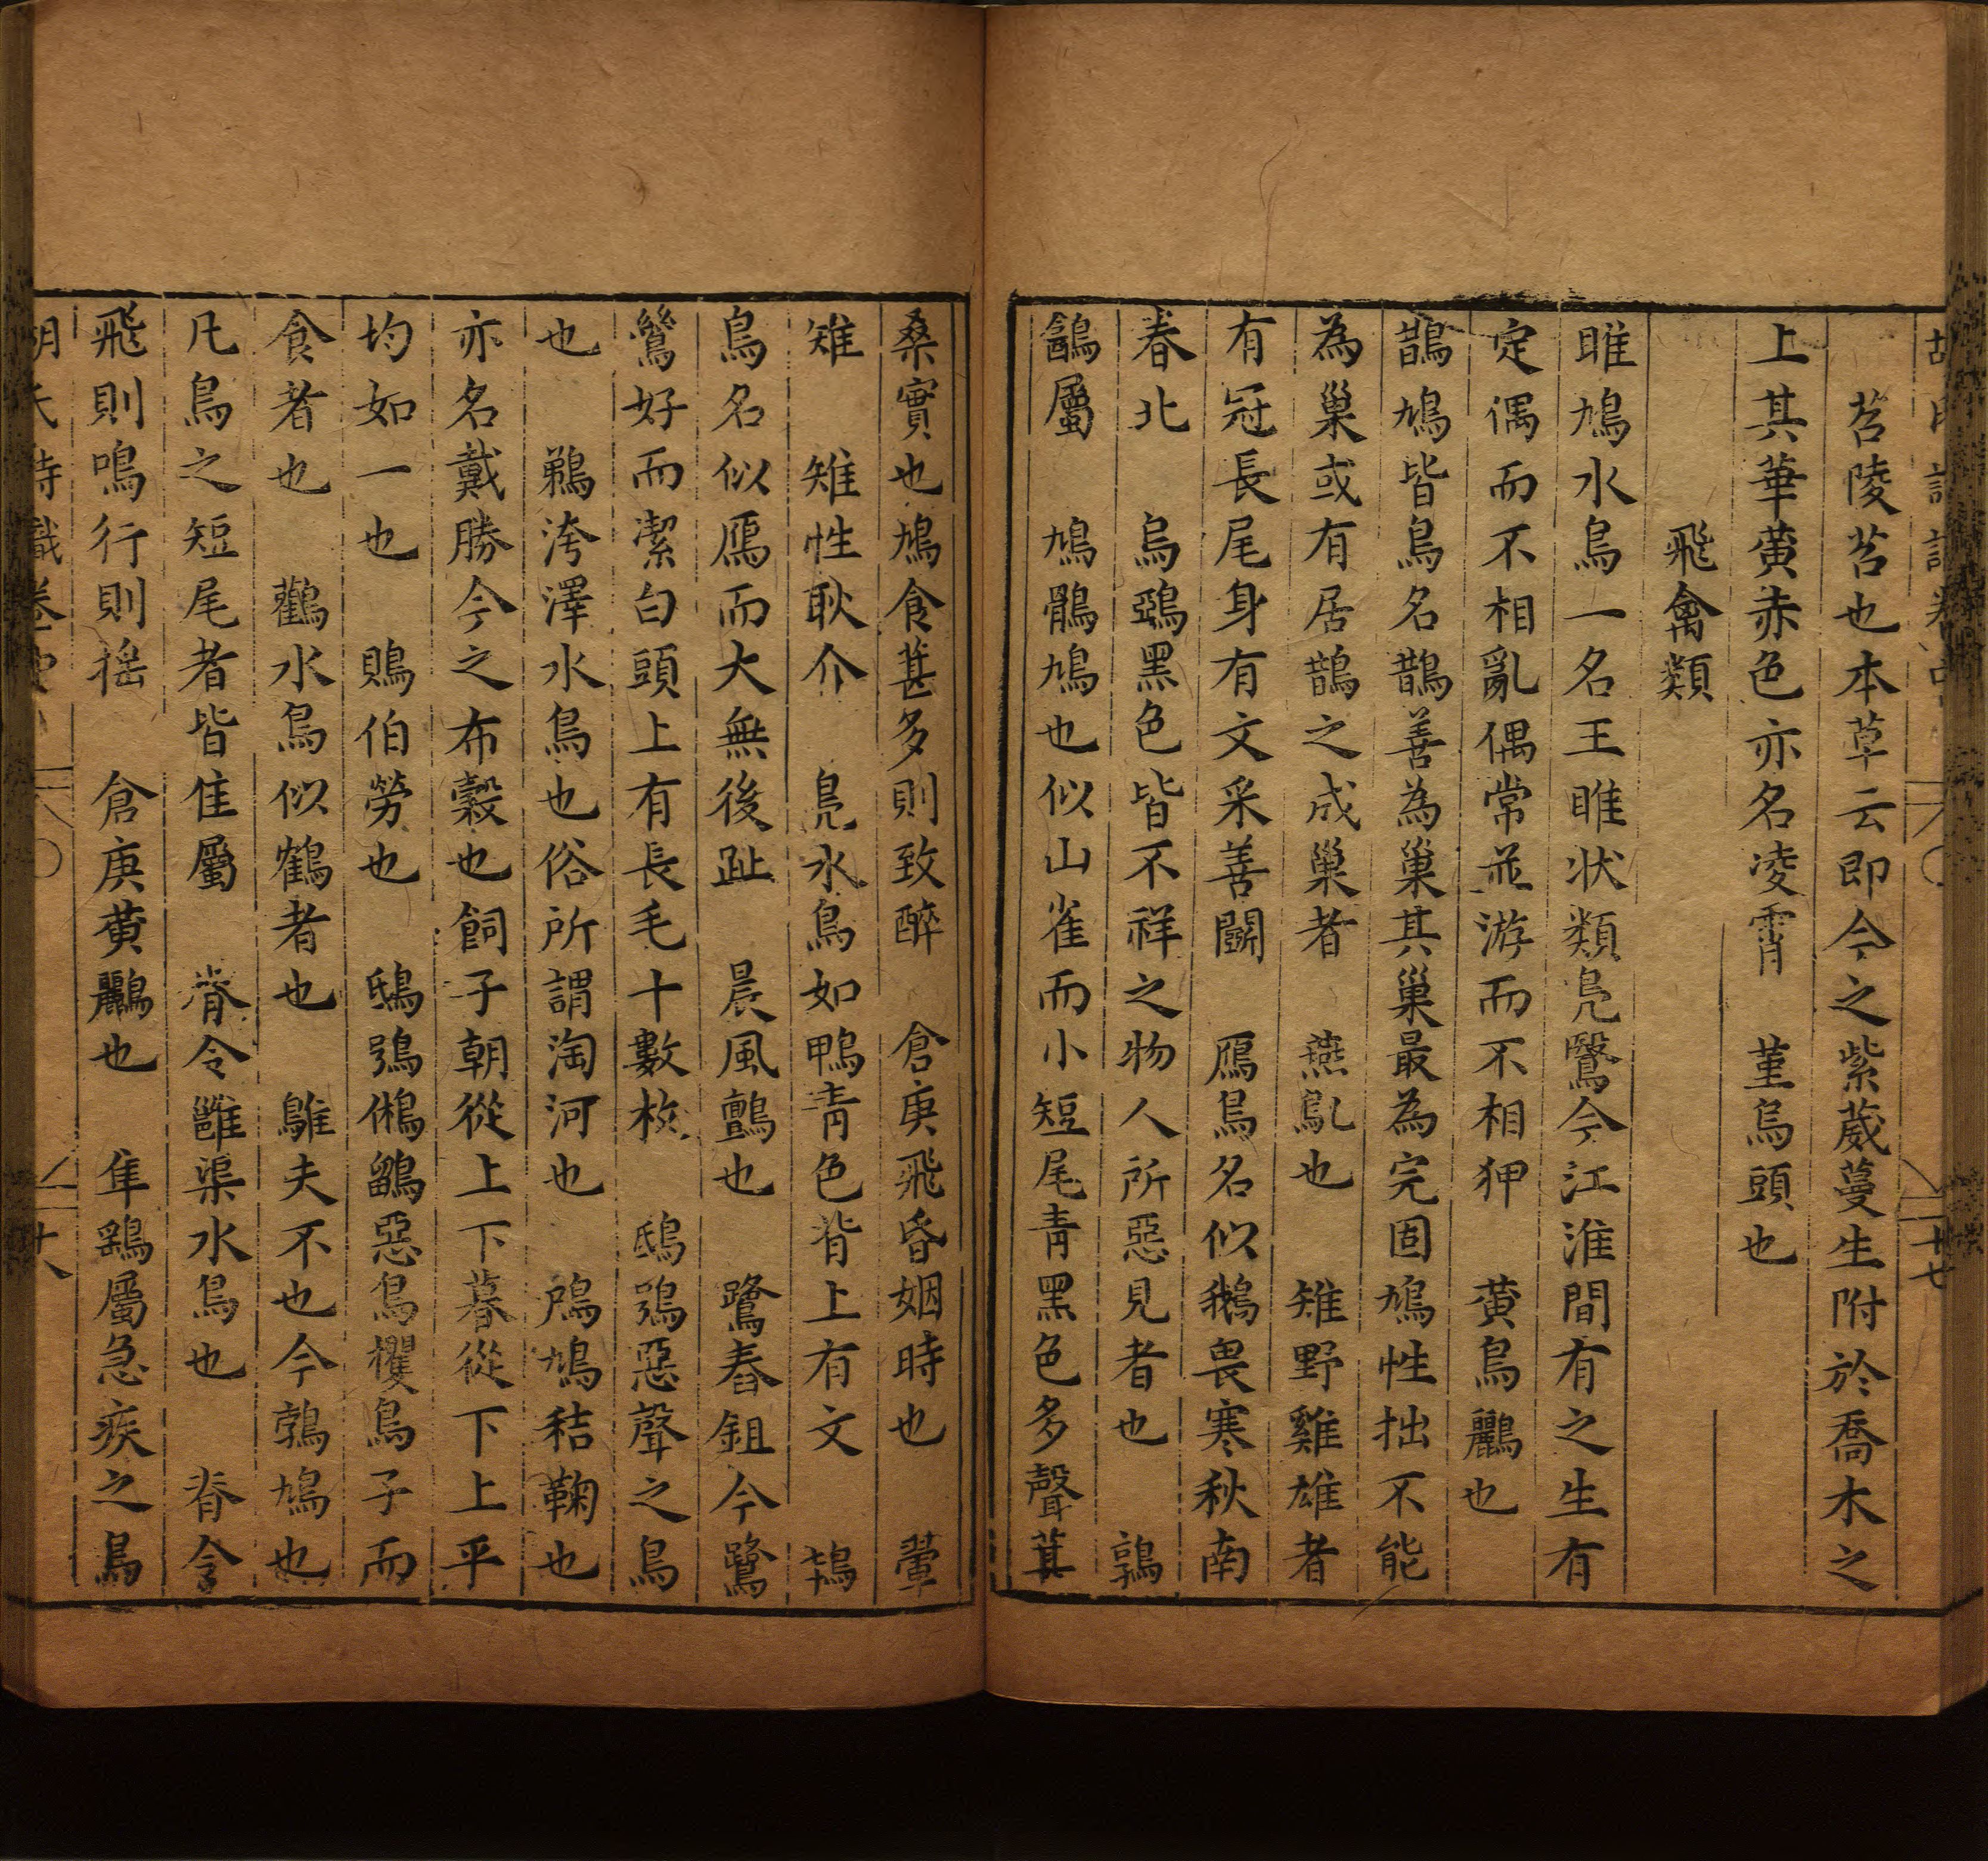 苕陵苕也本草云即今之紫葳蔓生附於喬木之
上其華黄赤色亦名凌霄　堇烏頭也
飛禽類
雎鳩水鳥一名王雎状類鳧鷖今江淮間有之生有
定偶而不相亂偶常並游而不相狎　黄鳥鸝也
鵲鳩皆鳥名鵲善為巢其巢最為完固鳩性拙不能
為巢或有居鵲之成巢者　燕鳦也　雉野雞雄者
有冠長尾身有文采善鬬　鴈鳥名似鵝畏寒秋南
春北　烏鵶黑色皆不祥之物人所惡見者也　鶉
鷂屬　鳩鶻鳩也似山雀而小短尾青黑色多聲葚
桑實也鳩食葚多則致醉　倉庚飛昏姻時也　翬
雉　雉性耿介　鳧水鳥如鴨青色背上有文　鴇
鳥名似鴈而大無後趾　晨風鸇也　鷺舂鉏今鷺
鷥好而潔白頭上有長毛十數枚　鴟鴞惡聲之鳥
也　鵜洿澤水鳥也俗所謂淘河也　鳲鳩秸鞠也
亦名戴勝今之布穀也飼子朝從上下暮從下上平
均如一也　鵙伯勞也　鴟鴞鵂鶹惡鳥攫鳥子而
食者也　鸛水鳥似鶴者也　鵻夫不也今鵓鳩也
凡鳥之短尾者皆隹屬　脊令雝渠水鳥也　脊令
飛則鳴行則搖　倉庚黄鸝也　隼鷂屬急疾之鳥
十八
十七